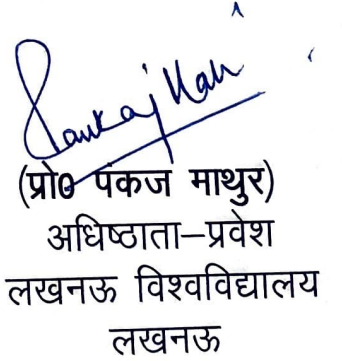 Pankaj
(प्रो0 पंकज माथुर)
अधिष्ठाता–प्रवेश
लखनऊ विश्वविद्यालय
लखनऊ